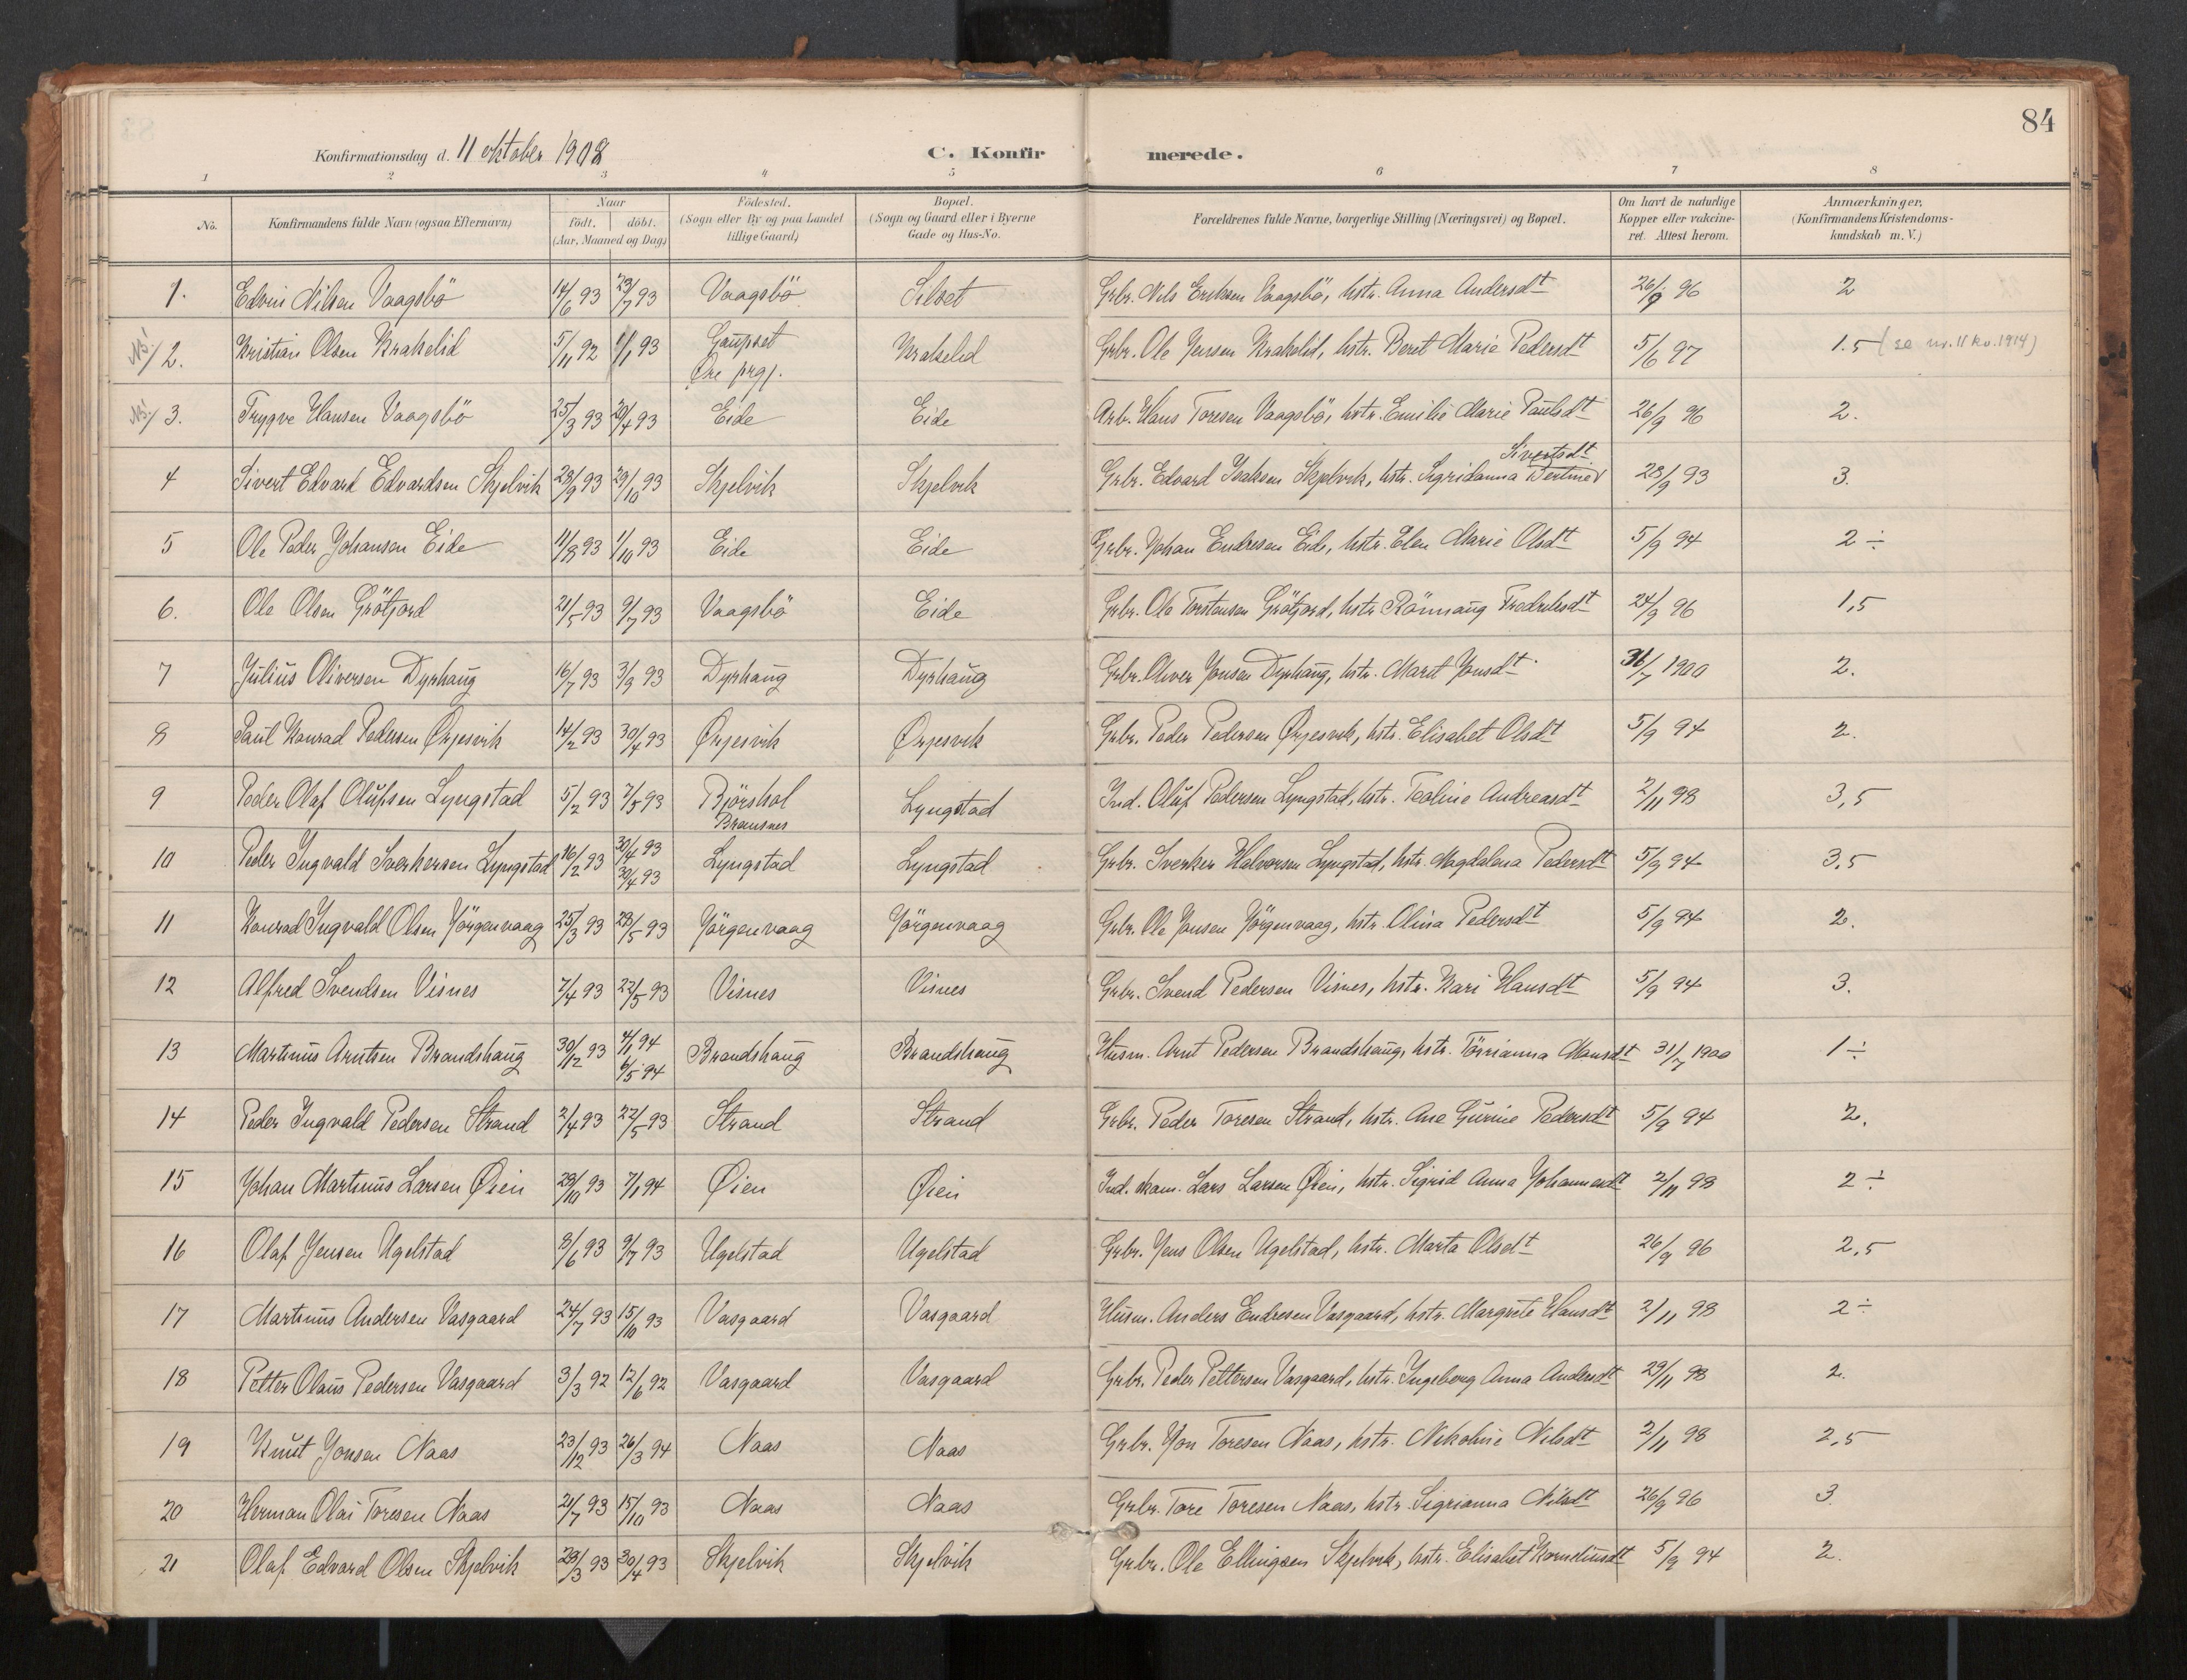 84
Konfirmationsdag d. 11 oktober 1908 C. Konfirmerede.
1 2 3 4 5 6 7 8
No. Konfirmandens fulde Navn (ogsaa Efternavn) Naar födt, döbt. (Aar, Maaned og Dag) Födested. (Sogn eller By og paa Landet tillige Gaard) Bopæl. (Sogn og Gaard eller i Byerne Gade og Hus-No. Forældrenes fulde Navne, borgerlige Stilling (Næringsvei) og Bopæl. Om havt de naturlige Kopper eller vakcineret. Attest herom. Anmærkninger, (Konfirmandens Kristendomskundskab m. V.)
1. Edvin Nilsen Vaagsbö 14/6 93 23/7 93 Vaagsbö Silset Grbr. Nils Eriksen Vaagsbö, hstr. Anna Andersdt 26/9 96 2
NB! 2. Kristian Olsen Krakelid 5/11 92 1/1 93 Gaupset Øre prgj. Krakelid Grbr. Ole Jensen Krakelid, hstr. Beret Marie Pedersdt 5/6 97 1.5 (se nr. 11 kv. 1914)
NB! 3. Trygve Hansen Vaagsbö 25/3 93 20/4 93 Eide Eide Arb. Hans Toresen Vaagsbö, hstr. Emilie Marie Paulsdt 26/9 96 2.
4 Sivert Edvard Edvardsen Skjelvik 28/9 93 29/10 93 Skjelvik Skjelvik Grbr. Edvard Isaksen Skjelvik, hstr. Sigridanna Bertine Sivertsdt 23/9 93 3.
5 Ole Peder Johansen Eide 11/8 93 1/10 93 Eide Eide Grbr. Johan Endresen Eide, hstr. Elen Marie Olsdt 5/9 94 2 ÷
6. Ole Olsen Gröfjord 21/5 93 9/7 93 Vaagsbö Eide Grbr. Ole Torstensen Gröfjord, hstr. Rönnaug Fredriksdt 24/9 96 1,5
7 Julius Oliversen Dyrhaug 16/7 93 3/9 93 Dyrhaug Dyrhaug Grbr. Oliver Jonsen Dyrhaug, hstr. Marit Jonsdt 31/7 1900 2.
8 Paul Konrad Pedersen Ørjesvik 14/2 93 30/4 93 Ørjesvik Ørjesvik Grbr. Peder Pedersen Ørjesvik, hstr. Elisabet Olsdt 5/9 94 2.
9 Peder Olaf Olufsen Lyngstad 5/2 93 7/5 93 Björshol Bremsnes Lyngstad Ind. Oluf Pedersen Lyngstad, hstr. Teoline Andreasdt 2/11 98 3,5
10 Peder Ingvald Sverkersen Lyngstad 16/2 93 30/4 93 30/4 93 Lyngstad Lyngstad Grbr. Sverker Halvorsen Lyngstad, hstr. Magdalena Pedersdt 5/9 94 3,5
11 Konrad Ingvald Olsen Jörgenvaag 25/3 93 28/5 93 Jörgenvaag Jörgenvaag Grbr. Ole Jonsen Jörgenvaag, hstr. Olina Pedersdt 5/9 94 2.
12 Alfred Svendsen Visnes 7/4 93 22/5 93 Visnes Visnes Grbr. Svend Pedersen Visnes, hstr. Kari Hansdt 5/9 94 3.
13 Martinus Arntsen Brandshaug 30/12 93 4/1 94 6/5 94 Brandshaug Brandshaug Husm. Arnt Pedersen Brandshaug, hstr. Törrianna Monsdt 31/7 1900 1 ÷
14 Peder Ingvald Pedersen Strand 2/4 93 22/5 93 Strand Strand Grbr. Peder Toresen Strand, hstr. Ane Gurine Pedersdt 5/9 94 2.
15 Johan Martinus Larsen Øien 29/10 93 7/1 94 Øien Øien Ind. skom. Lars Larsen Øien, hstr. Sigrid Anna Johannesdt 2/11 98 2 ÷
16 Olaf Jensen Ugelstad 8/6 93 9/7 93 Ugelstad Ugelstad Grbr. Jens Olsen Ugelstad, hstr. Marta Olsdt 26/9 96 2,5
17 Martinus Andersen Vasgaard 24/7 93 15/10 93 Vasgaard Vasgaard Husm. Anders Endresen Vasgaard, hstr. Margrete Hansdt 2/11 98 2 ÷
18 Petter Olaus Pedersen Vasgaard 3/3 92 12/6 92 Vasgaard Vasgaard Grbr. Peder Pettersen Vasgaard, hstr. Ingeborg Anna Andersdt 29/11 98 2.
19 Knut Jonsen Naas 23/12 93 26/3 94 Naas Naas Grbr. Jon Toresen Naas, hstr. Nikoline Nilsdt 2/11 98 2,5
20 Herman Olai Toresen Naas 21/7 93 15/10 93 Naas Naas Grbr. Tore Toresen Naas, hstr. Sigrianna Nilsdt 26/9 96 3
21 Olaf Edvard Olsen Skjelvik 23/3 93 30/4 93 Skjelvik Skjelvik Grbr. Ole Ellingsen Skjelvik, hstr. Elisabet Korneliusdt 5/9 94 2.